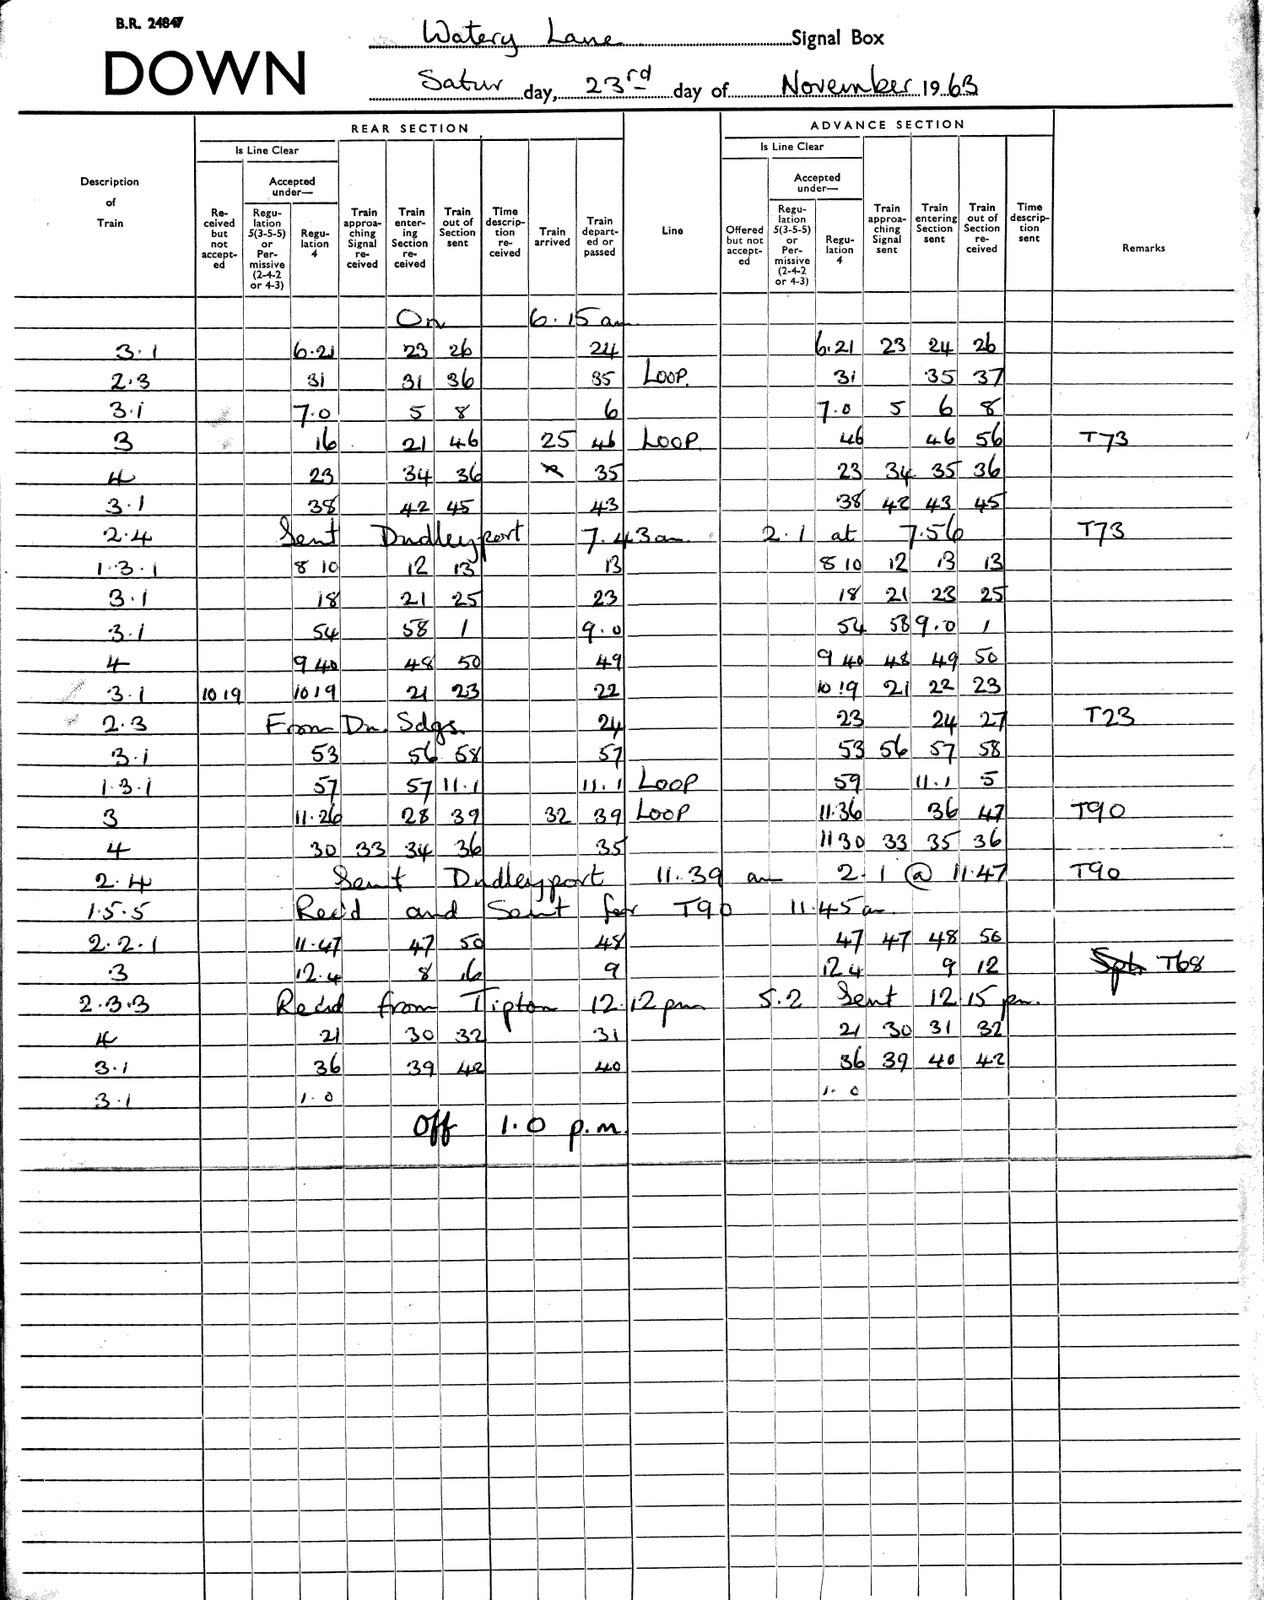 B.R. 24847
DOWN
Watery Lane Signal Box
Satur day, 23rd day of November 1963
REAR SECTION ADVANCE SECTION
Is Line Clear Is Line Clear
Description of Train
Received but not accepted
Accepted under—
Regulation 5(3-5-5) or Permissive (2-4-2 or 4-3)
Regulation 4
Train approaching Signal received
Train entering Section received
Train out of Section sent
Time description received
Train arrived
Train departed or passed
Line
Offered but not accepted
Accepted under—
Regulation 5(3-5-5) or Permissive (2-4-2 or 4-3)
Regulation 4
Train approaching Signal sent
Train entering Section sent
Train out of Section received
Time description sent
Remarks
On 6.15 am
3.1 6.21 23 26 24 6.21 23 24 26
2.3 31 31 36 35 LOOP. 31 35 37
3.1 7.0 5 8 6 7.0 5 6 8
3 16 21 46 25 46 LOOP 46 46 56 T73
4 23 34 36 35 23 34 35 36
3.1 38 42 45 43 38 42 43 45
2.4 Sent Dudleyport 7.43am 2.1 at 7.56 T73
1.3.1 8 10 12 13 13 8 10 12 13 13
3.1 18 21 25 23 18 21 23 25
3.1 54 58 1 9.0 54 58 9.0 1
4 9 40 48 50 49 9 40 48 49 50
3.1 10 19 10 19 21 23 22 10 19 21 22 23
2.3 From Dn. Sdgs. 24 23 24 27 T23
3.1 53 56 58 57 53 56 57 58
1.3.1 57 57 11.1 11.1 LOOP 59 11.1 5
3 11.26 28 39 32 39 LOOP 11.36 36 47 T90
4 30 33 34 36 35 11 30 33 35 36
2.4 Sent Dudleyport 11.39 am 2.1 @ 11.47 T90
1.5.5 Rec'd and Sent for T90 11.45am
2.2.1 11.47 47 50 48 47 47 48 50
3 12.4 8 16 9 12 4 9 12 T68
2.3.3 Rec'd from Tipton 12.12pm 5.2 Sent 12.15pm.
4 21 30 32 31 21 30 31 32
3.1 36 39 42 40 36 39 40 42
3.1 1.0 1.0
Off 1.0 p.m.